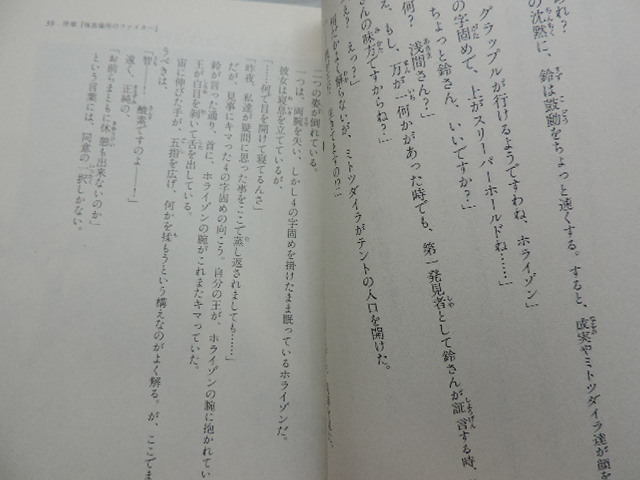 られ？
の沈黙に、鈴は鼓動をちょっと速くする。すると、成実やミトツダイラ達が顔を
グラップルが行けるようですわね、ホライゾン」
の字固めで、上がスリーパーホールドね……」
っと鈴さん、いいですか？」
浅間さん？」
何？
え、もし、万が一何かがあった時でも、第一発見者として鈴さんが証言する時、
さんの味方ですからね？」
え？ えっ？」
ミトツダイラがテントの入口を開けた。
二つの姿が倒れている。
一つは、両腕を失い、しかし4の字固めを掛けたまま眠っているホライゾンだ。
彼女は寝息を立てているが、
「……何で目を開けて寝てるんさ」
「昨夜、私達が疑問に思った事をここで蒸し返されましても……」
だが、見事にキマった4の字固めの向こう。自分の王が、ホライゾンの腕に抱かれてい
鈴が言った通り、首に、ホライゾンの腕がこれまたキマっていた。
王が白目を剥いて舌を出している。
宙に伸びた手が、五指を広げ、何かを揉もうという構えなのがよく解る。が、ここでま
うべきは、
「智――！ 酸素ですのよ――！」
遠く、正純の、
「お前らまともに休憩も出来ないのか」
という言葉には、同意の一択しかない。
39 序章『休息場所のファイター』